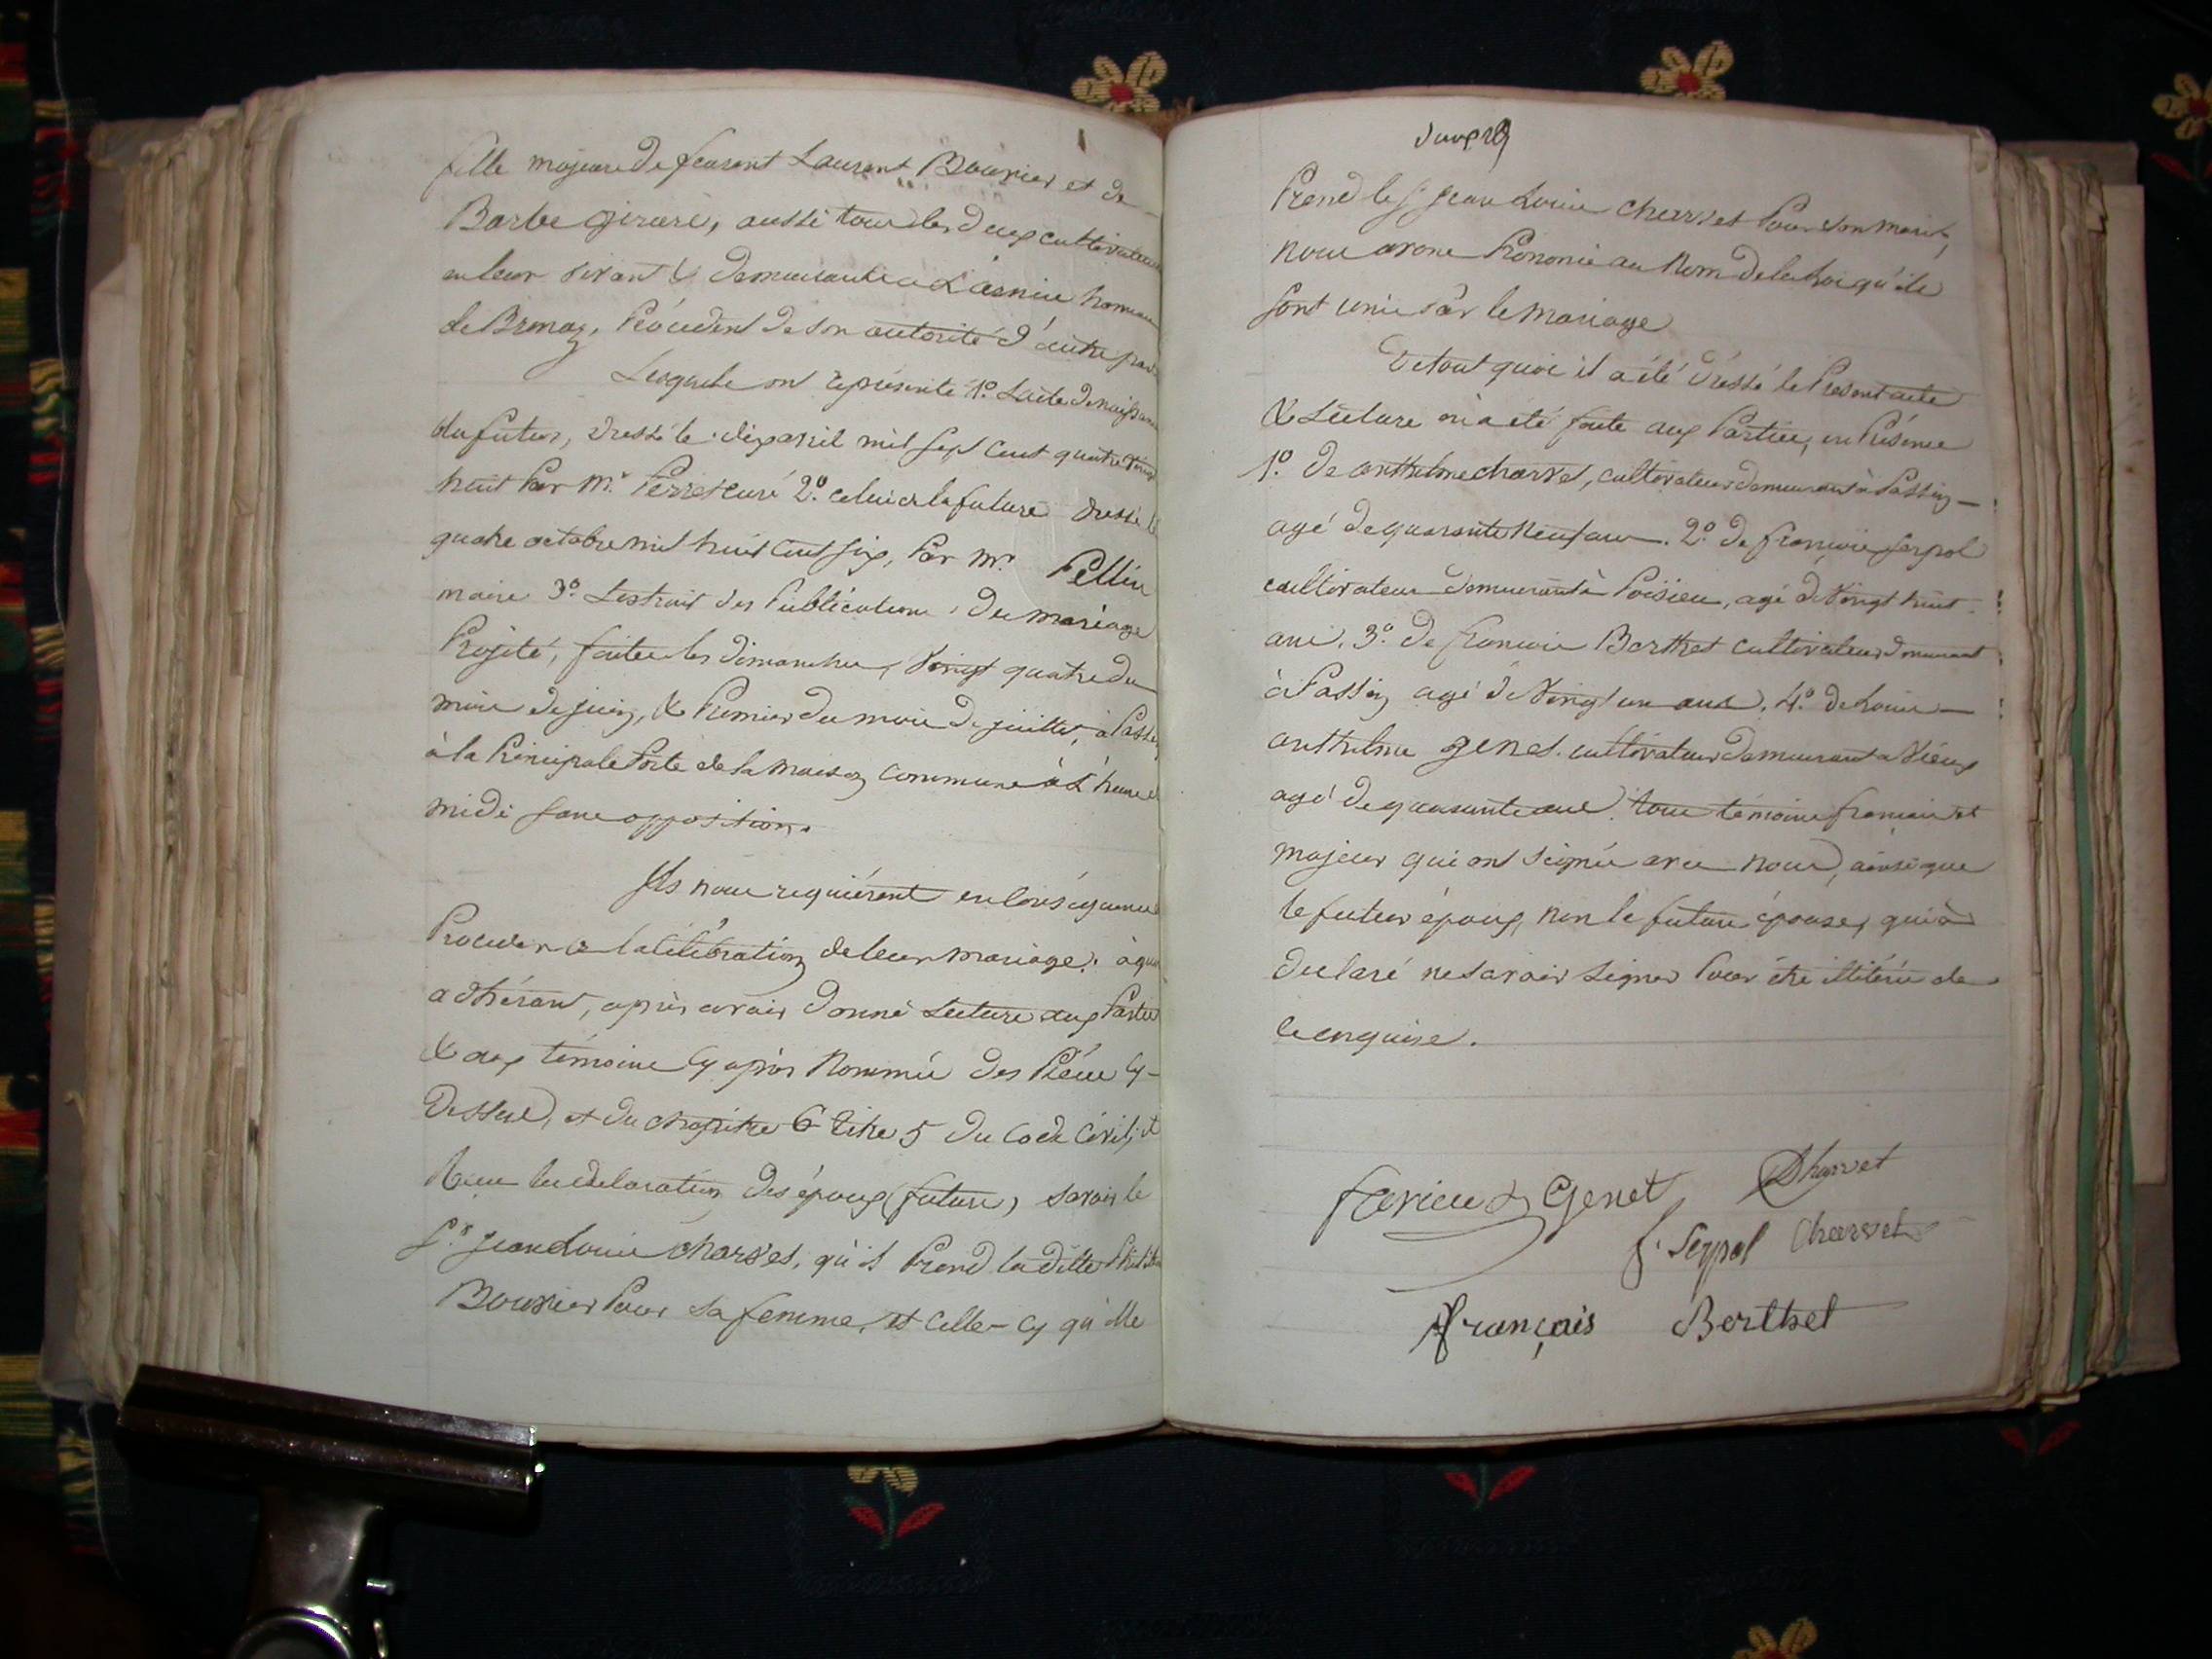 fille majeure de feu Laurent Bouvier et de
Barbe girare, aussi tous les deux cultivateurs
en leur vivant & demeurante a hameau
de Brenaz, Procédent de son autorité d'autre part
Lesquels ont représenté 1º. L'acte de naissance
du futur, dressé le dix avril mil sept cent quatre vingt
huit Par Mr. Perret curé 2º. celui de la future dressé le
quatre octobre mil huit cent six, Par mr. Pellin
maire 3º. Lextrait des Publications du mariage
Projété, faites les dimanches, vingt quatre du
mois de juin, & Premier du mois de juillet, à Passin
à la Principale Porte de la maison commune à l'heure de
midi sans opposition.
Ils nous requiérent en conséquence
Proceder a la célébration de leur mariage. à quoi
adhérant, après avoir donné Lecture aux Parties
& aux témoins cy après Nommés des Pièces cy-
Dessus, et du chapitre 6 titre 5 du Code Civil, et
Reçu la déclaration des époux futurs, savoir le
Sr. jean Louis charvet, qu'il Prend la ditte
Bouvier Pour sa femme, et celle-cy qu'elle
Prend le S. jean Louis charvet Pour son mari,
nous avons Prononcé au Nom de la Loi qu'ils
sont unis Par le mariage
De tout quoi il a été dressé le Présent acte
& Lecture en a été faite aux Parties, en Présence
1º. de anthelme charvet, cultivateur demeurant à Passin
agé de quarante Neuf ans. 2º. de françois serpol
cultivateur demeurant à Poisieu, agé de vingt huit
ans. 3º. de françois Berthet cultivateur demeurant
à Passin agé de vingt un ans. 4º. de Louis
anthelme genet. cultivateur demeurant a Vieux
agé de quarante ans. tous témoins français et
majeur qui ont signés avec nous, ainsi que
le futur époux, non la future épouse, qui à
declaré ne savoir signer Pour étre illitérée de
ce enquise.
Genet Charvet
f. Serpol Charvet
françois Berthet